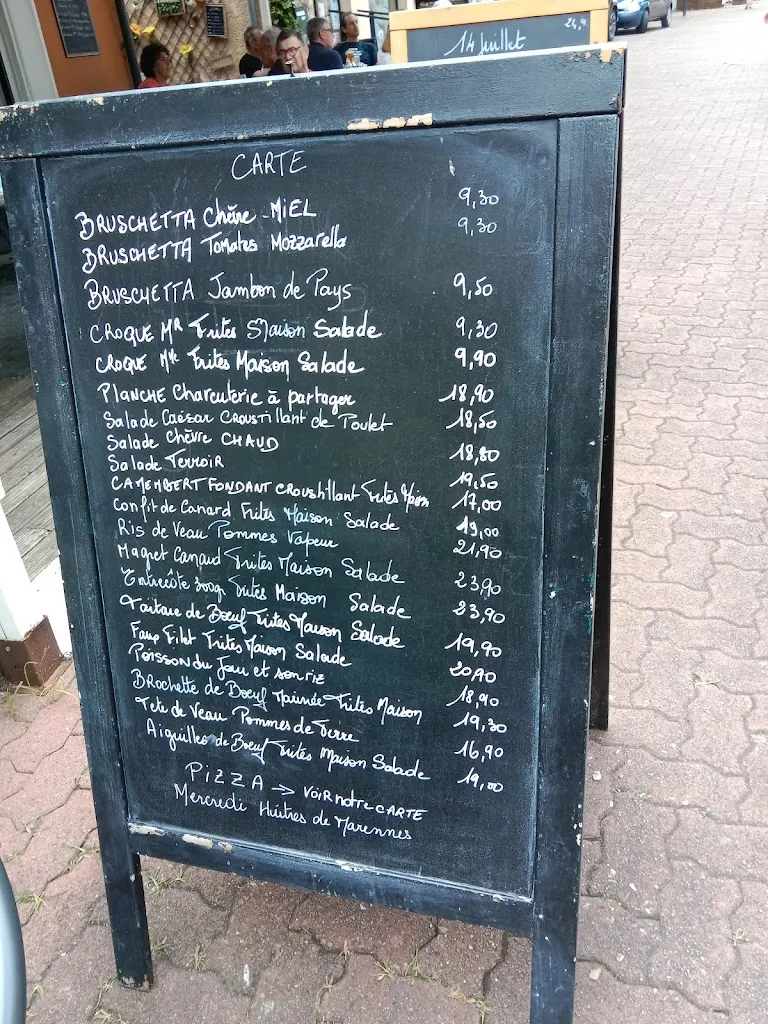 14 Juillet
CARTE
BRUSCHETTA Chèvre - MIEL 9,30
BRUSCHETTA Tomates Mozzarella 9,30
BRUSCHETTA Jambon de Pays 9,50
CROQUE Mr Frites Maison Salade 9,30
CROQUE Me Frites Maison Salade 9,90
PLANCHE Charcuterie à partager 18,90
Salade Caésar CROUSTILLant de Poulet 18,50
Salade Chèvre CHAUD 18,80
Salade Terroir 19,50
CAMEMBERT FONDANT croustillant Frites 17,00
Confit de Canard Frites Maison Salade 19,00
Ris de Veau Pommes Vapeur 21,90
Magret Canard Frites Maison Salade 23,90
Entrecôte 300g Frites Maison Salade 23,90
Tartare de Boeuf Frites Maison Salade 19,90
Faux Filet Frites Maison Salade 20,90
Poisson du Jour et son riz 18,90
Brochette de Boeuf Marinée Frites Maison 19,30
Tete de Veau Pommes de Terre 16,90
Aiguilles de Boeuf Frites Maison Salade 19,00
PIZZA → VOIR notre CARTE
Mercredi Huîtres de Marennes